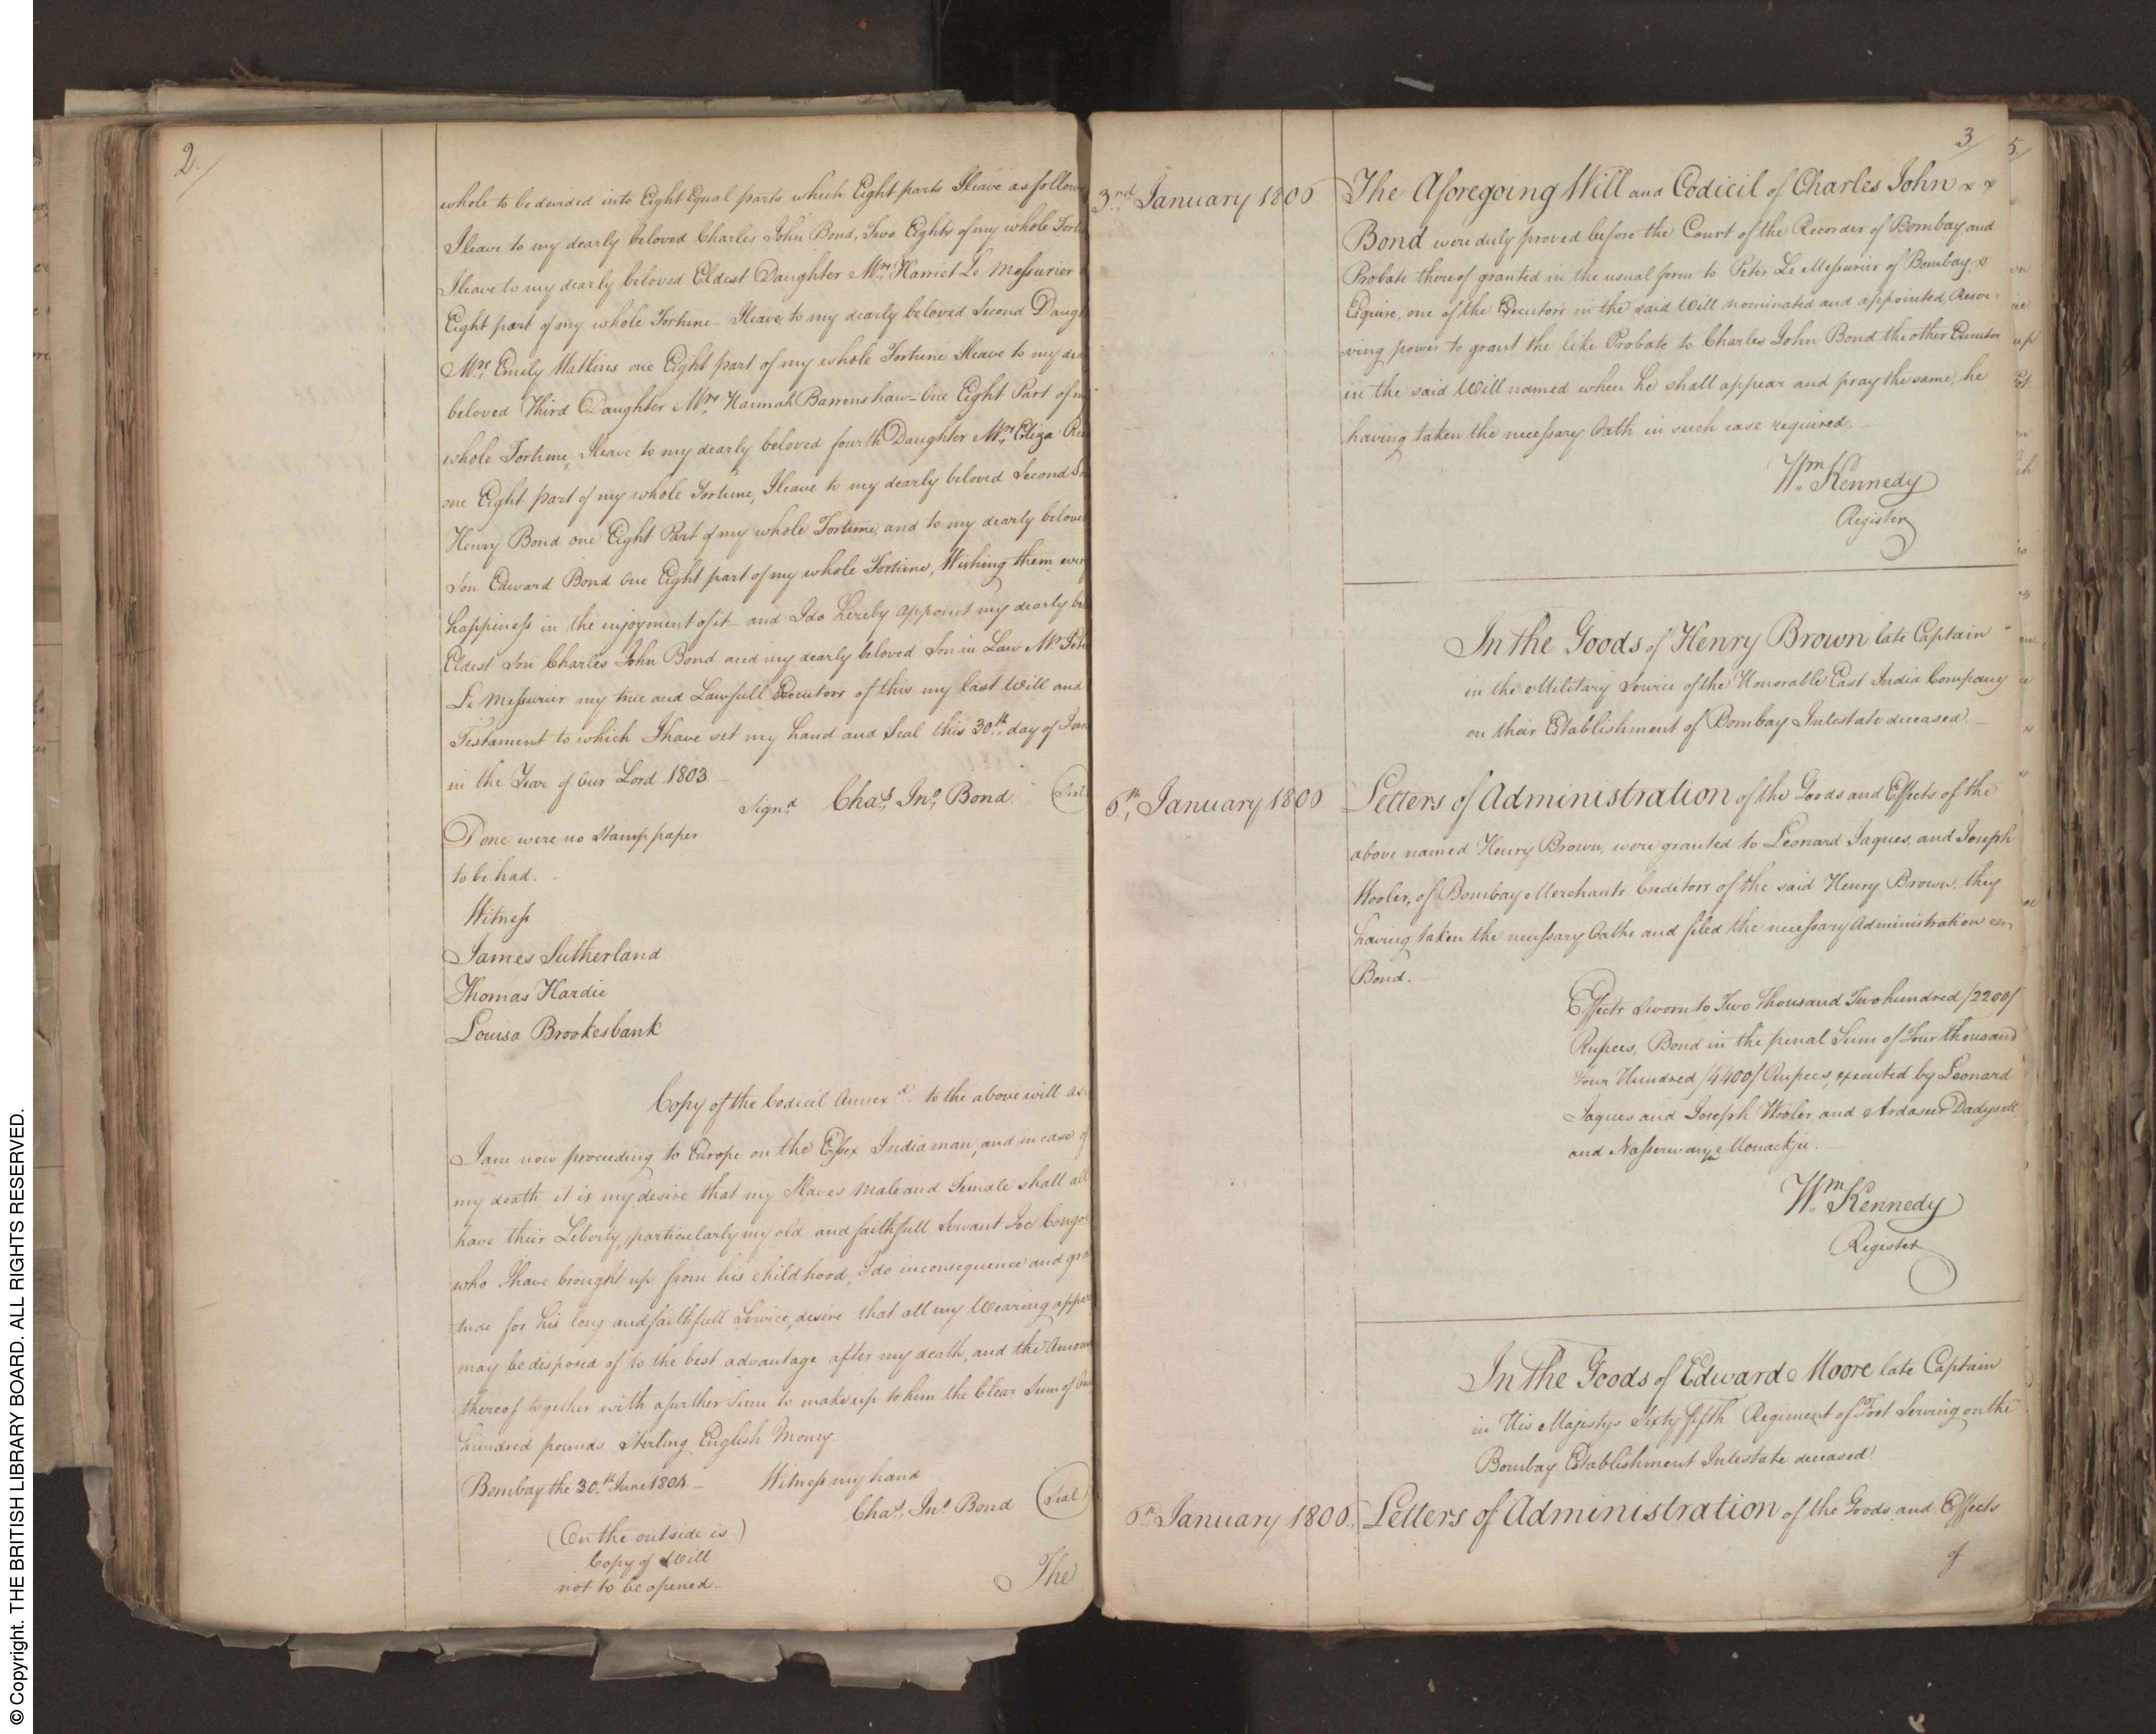 2.
whole to be devided into Eight Equal parts which Eight parts I leave as follow
I leave to my dearly beloved Charles John Bond, Two Eights of my whole Fort
I leave to my dearly beloved Eldest Daughter Mrs. Harriet Le Messurier
Eight part of my whole Fortune - I leave to my dearly beloved Second Daugh
Mrs. Emily Watkins one Eight part of my whole Fortune I leave to my dea
beloved Third Daughter Mrs. Hannah Barrenshaw - One Eight Part of m
whole Fortune, I leave to my dearly beloved fourth Daughter Mrs. Eliza
one Eight part of my whole Fortune, I leave to my dearly beloved Second S
Henry Bond one Eight Part of my whole Fortune, and to my dearly belove
Son Edward Bond One Eight part of my whole Fortune, Wishing them ever
happiness in the enjoyment of it - and I do hereby appoint my dearly be
Eldest Son Charles John Bond and my dearly beloved Son in Law Mr. Pete
Le Messurier my true and Lawfull Executors of this my last Will and
Testament to which I have set my hand and Seal this 30th. day of Jan
in the Year of Our Lord 1803.
Signd. Chas. Jno. Bond (Seal
Done were no Stamp paper
to be had.
Witness
James Sutherland
Thomas Hardie
Louisa Brookesbank
Copy of the Codicil Annexd. to the above will as
I am now proceeding to Europe on the Essex Indiaman, and in case of
my death it is my desire that my Slaves Male and Female shall all
have their Liberty, particularly my old and faithfull Servant Joe Congo
who I have brought up from his childhood, I do in consequence and gra
tude for his long and faithfull Service, desire that all my Wearing appar
may be disposed of to the best advantage after my death, and the Amoun
thereof together with a further Sum to make up to him the Clear Sum of One
hundred pounds Sterling English Money.
Bombay the 30th. June 1804. - Witness my hand
Chas. Jno. Bond (Seal)
(On the outside is)
Copy of Will
not to be opened -
The
3
5
3rd. January 1806. The Aforegoing Will and Codicil of Charles John x x
Bond were duly proved before the Court of the Recorder of Bombay and
Probate thereof granted in the usual form to Peter Le Messurier of Bombay
Esquire, one of the Executors in the said Will nominated and appointed, Reser-
ving power to grant the like Probate to Charles John Bond the other Executor
in the said Will named when he shall appear and pray the same, he
having taken the necessary Oath in such case required. -
Wm. Kennedy
Register
In the Goods of Henry Brown late Captain
in the Military Service of the Honorable East India Company
on their Establishment of Bombay Intestate deceased. -
6th. January 1806. Letters of Administration of the Goods and Effects of the
above named Henry Brown, were granted to Leonard Jaques, and Joseph
Wooler, of Bombay Merchants Creditors of the said Henry Brown, they
having taken the necessary Oaths and filed the necessary Administration
Bond. -
Effects Sworn to Two Thousand Two hundred /2200/
Rupees, Bond in the penal Sum of Four thousand
Four Hundred /4400/ Rupees, executed by Leonard
Jaques and Joseph Wooler, and Ardaseer Dadysett
and Nasserwanje Monackjee. -
Wm. Kennedy
Register
In the Goods of Edward Moore late Captain
in His Majestys Sixty fifth Regiment of Foot Serving on the
Bombay Establishment Intestate deceased.
6th. January 1806. Letters of Administration of the Goods and Effects
of
© Copyright. THE BRITISH LIBRARY BOARD. ALL RIGHTS RESERVED.